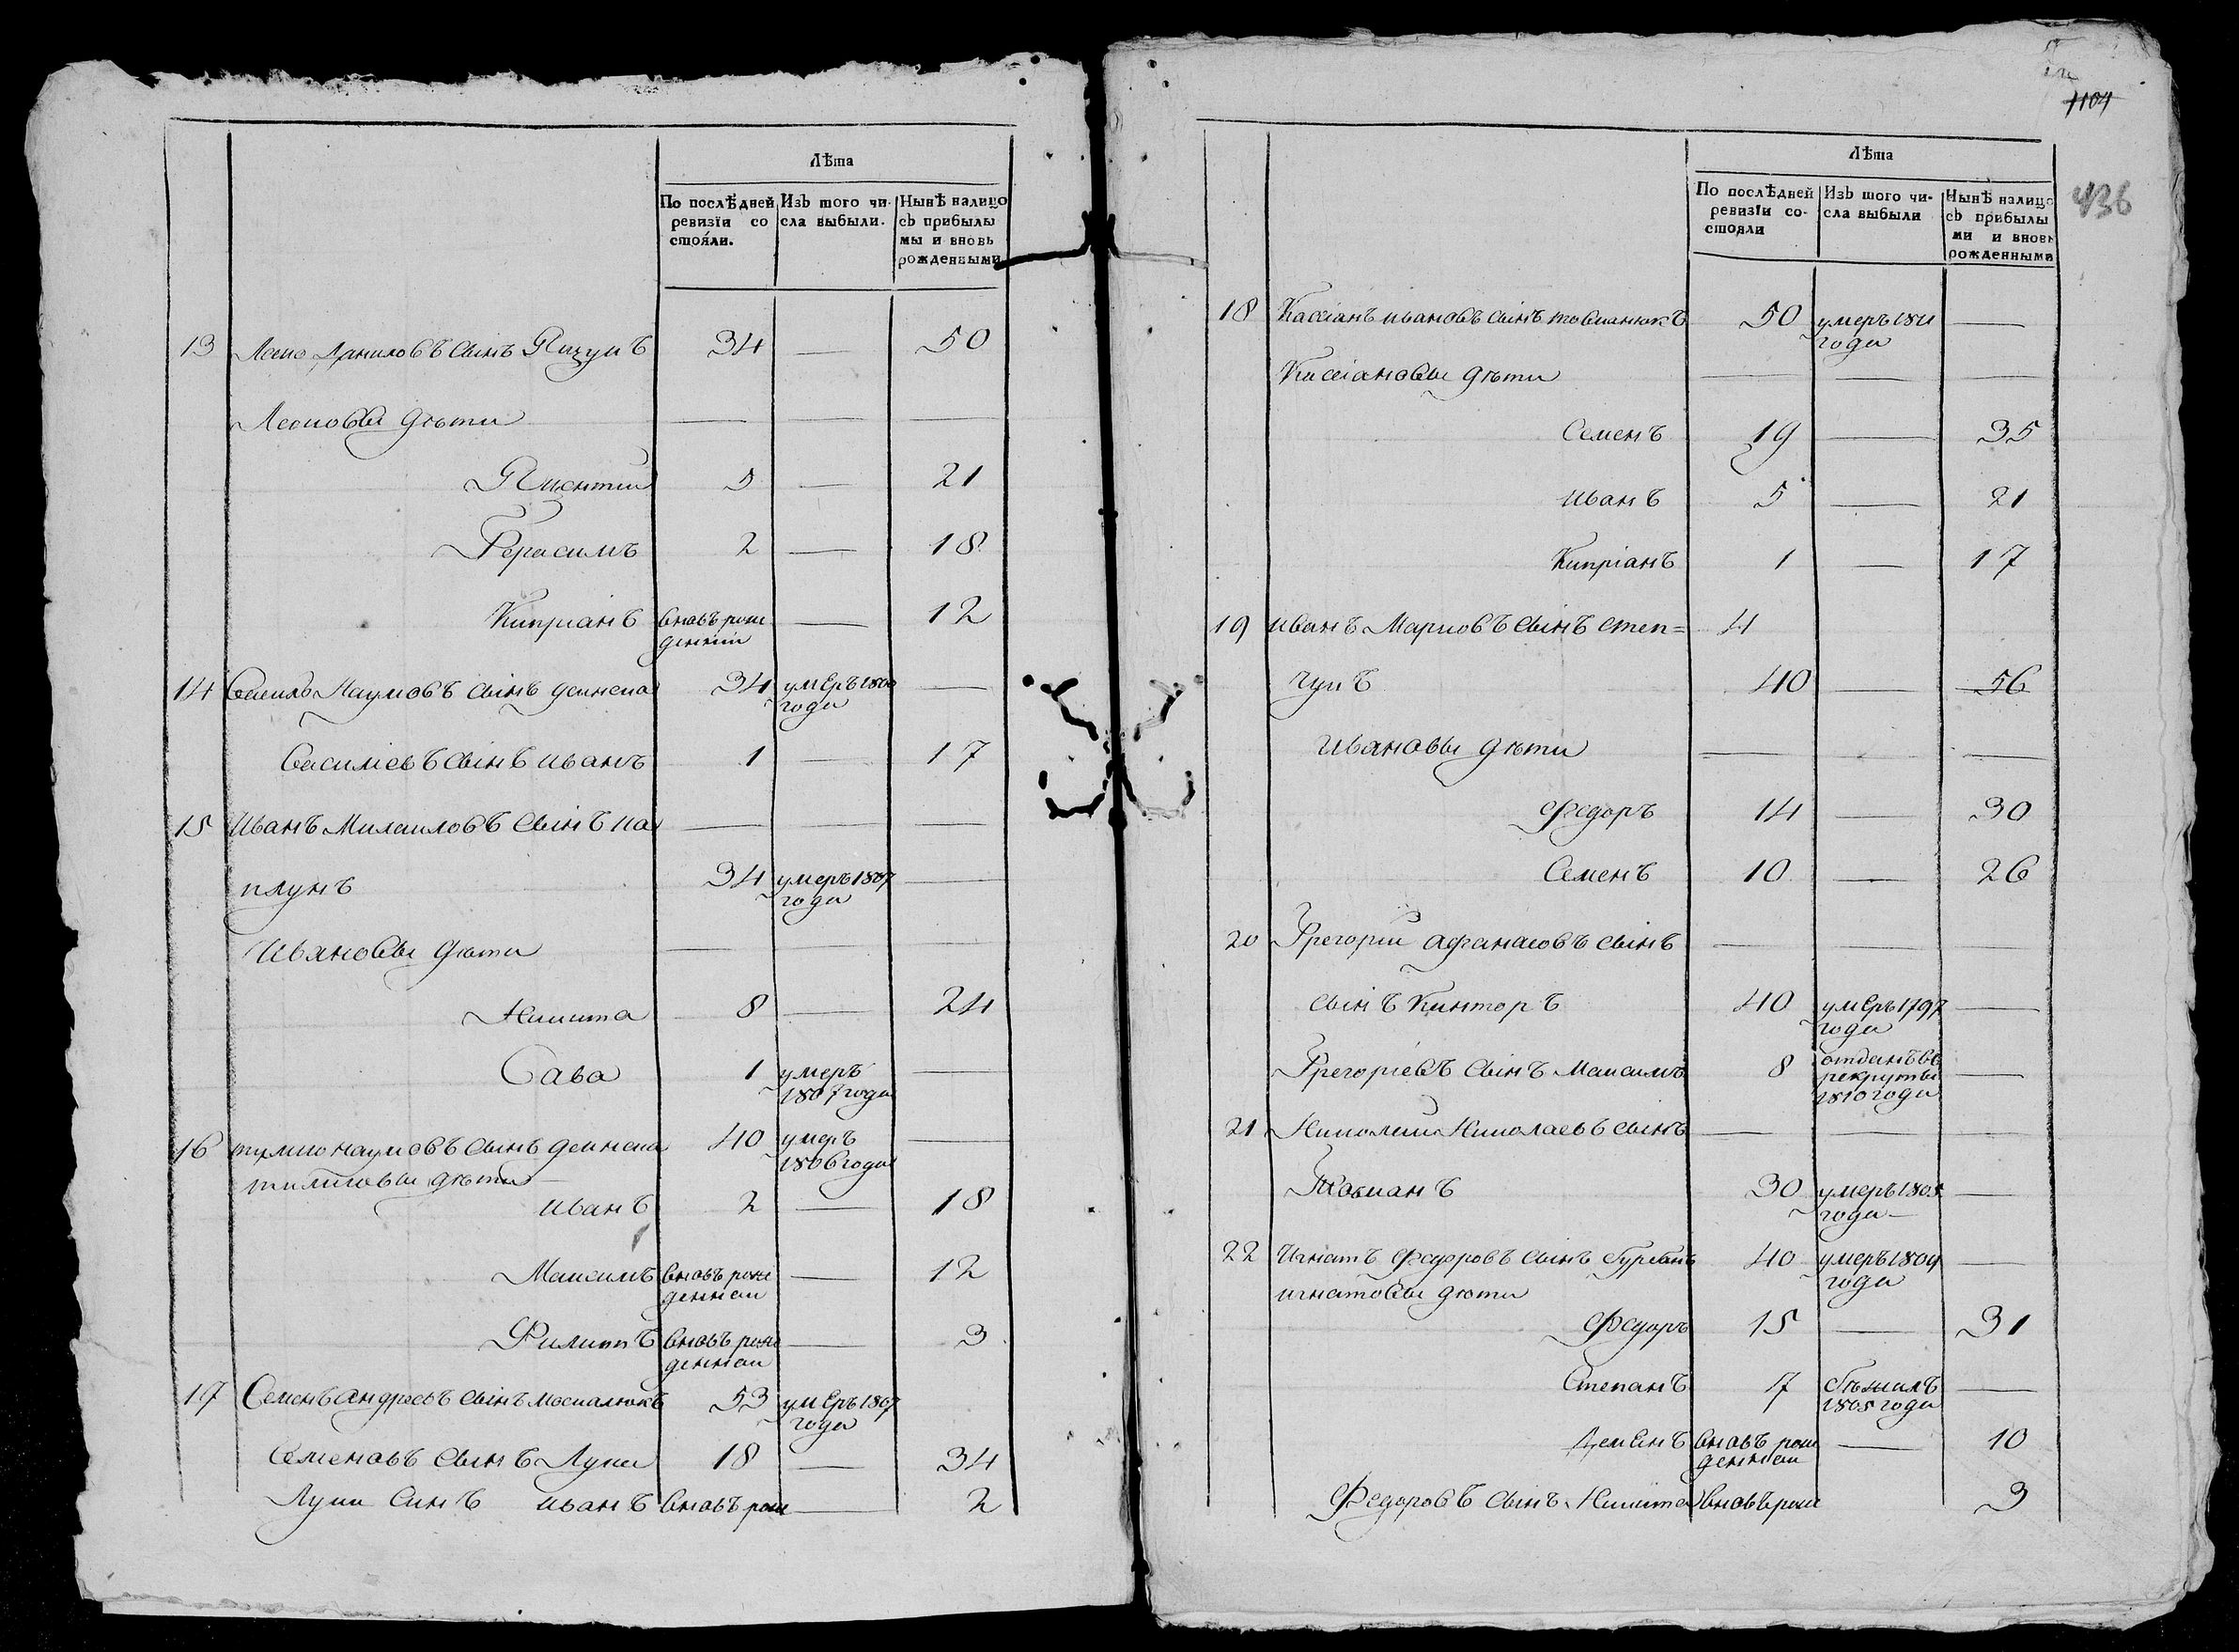 Лѣта
По послѣдней ревизїи состояли.
Изъ того числа выбыли.
Нынѣ налицо съ прибылымы и вновь рожденными
13 Леско Даниловъ сынъ 34 — 50
Лесковы дѣти — — —
5 — 21
Герасимъ 2 — 18
Кипріанъ вновь рож — 12
денніи
14 Василь Наумовъ сынъ 34 умеръ 1800 —
года
Василіевъ сынъ иванъ 1 — 17
15 Иванъ Михаиловъ сынъ ка — — —
плунъ 34 умеръ 1807 —
года
Ивановы дѣти — — —
Никита 8 — 24
Сава 1 умеръ —
1807 года
16 наумовъ сынъ 40 умеръ —
1806 года
дѣти
иванъ 2 — 18
Максимъ вновь рож — 12
деннои
Филипъ вновь рож — 3
деннои
17 Семенъ андреевъ сынъ москалюкъ 53 умеръ 1807
года
Семеновъ сынъ Лука 18 — 34
Луки синъ иванъ вновь рож — 2
1104
436
Лѣта
По послѣдней ревизїи состояли
Изъ того числа выбыли
Нынѣ налицо съ прибылыми и вновь рожденными
18 Кассіанъ ивановъ сынъ товманюкъ 50 умеръ 1811 —
года
Кассіановы дѣти — — —
Семенъ 19 — 35
иванъ 5 — 21
Кипріанъ 1 — 17
19 иванъ Марковъ сынъ степ= 4
чукъ 40 — 56
Ивановы дѣти — — —
Федоръ 14 — 30
Семенъ 10 — 26
20 Грегории афанасовъ сынъ — — —
сынъ Кинторъ 40 умеръ 1797 —
года
Грегоріевъ сынъ Максимъ 8 отданъ въ —
рекруты
1810 года
21 Николай Николаевъ сынъ — — —
Токманъ 30 умеръ 1805 —
года
22 Игнатъ Федоровъ сынъ Гурбанъ 40 умеръ 1809 —
года
игнатовы дѣти
Федоръ 15 — 31
Степанъ 7 бѣжалъ —
1805 года
Деменъ вновь рож — 10
деннои
Федоровъ сынъ Никита вновь рож 3